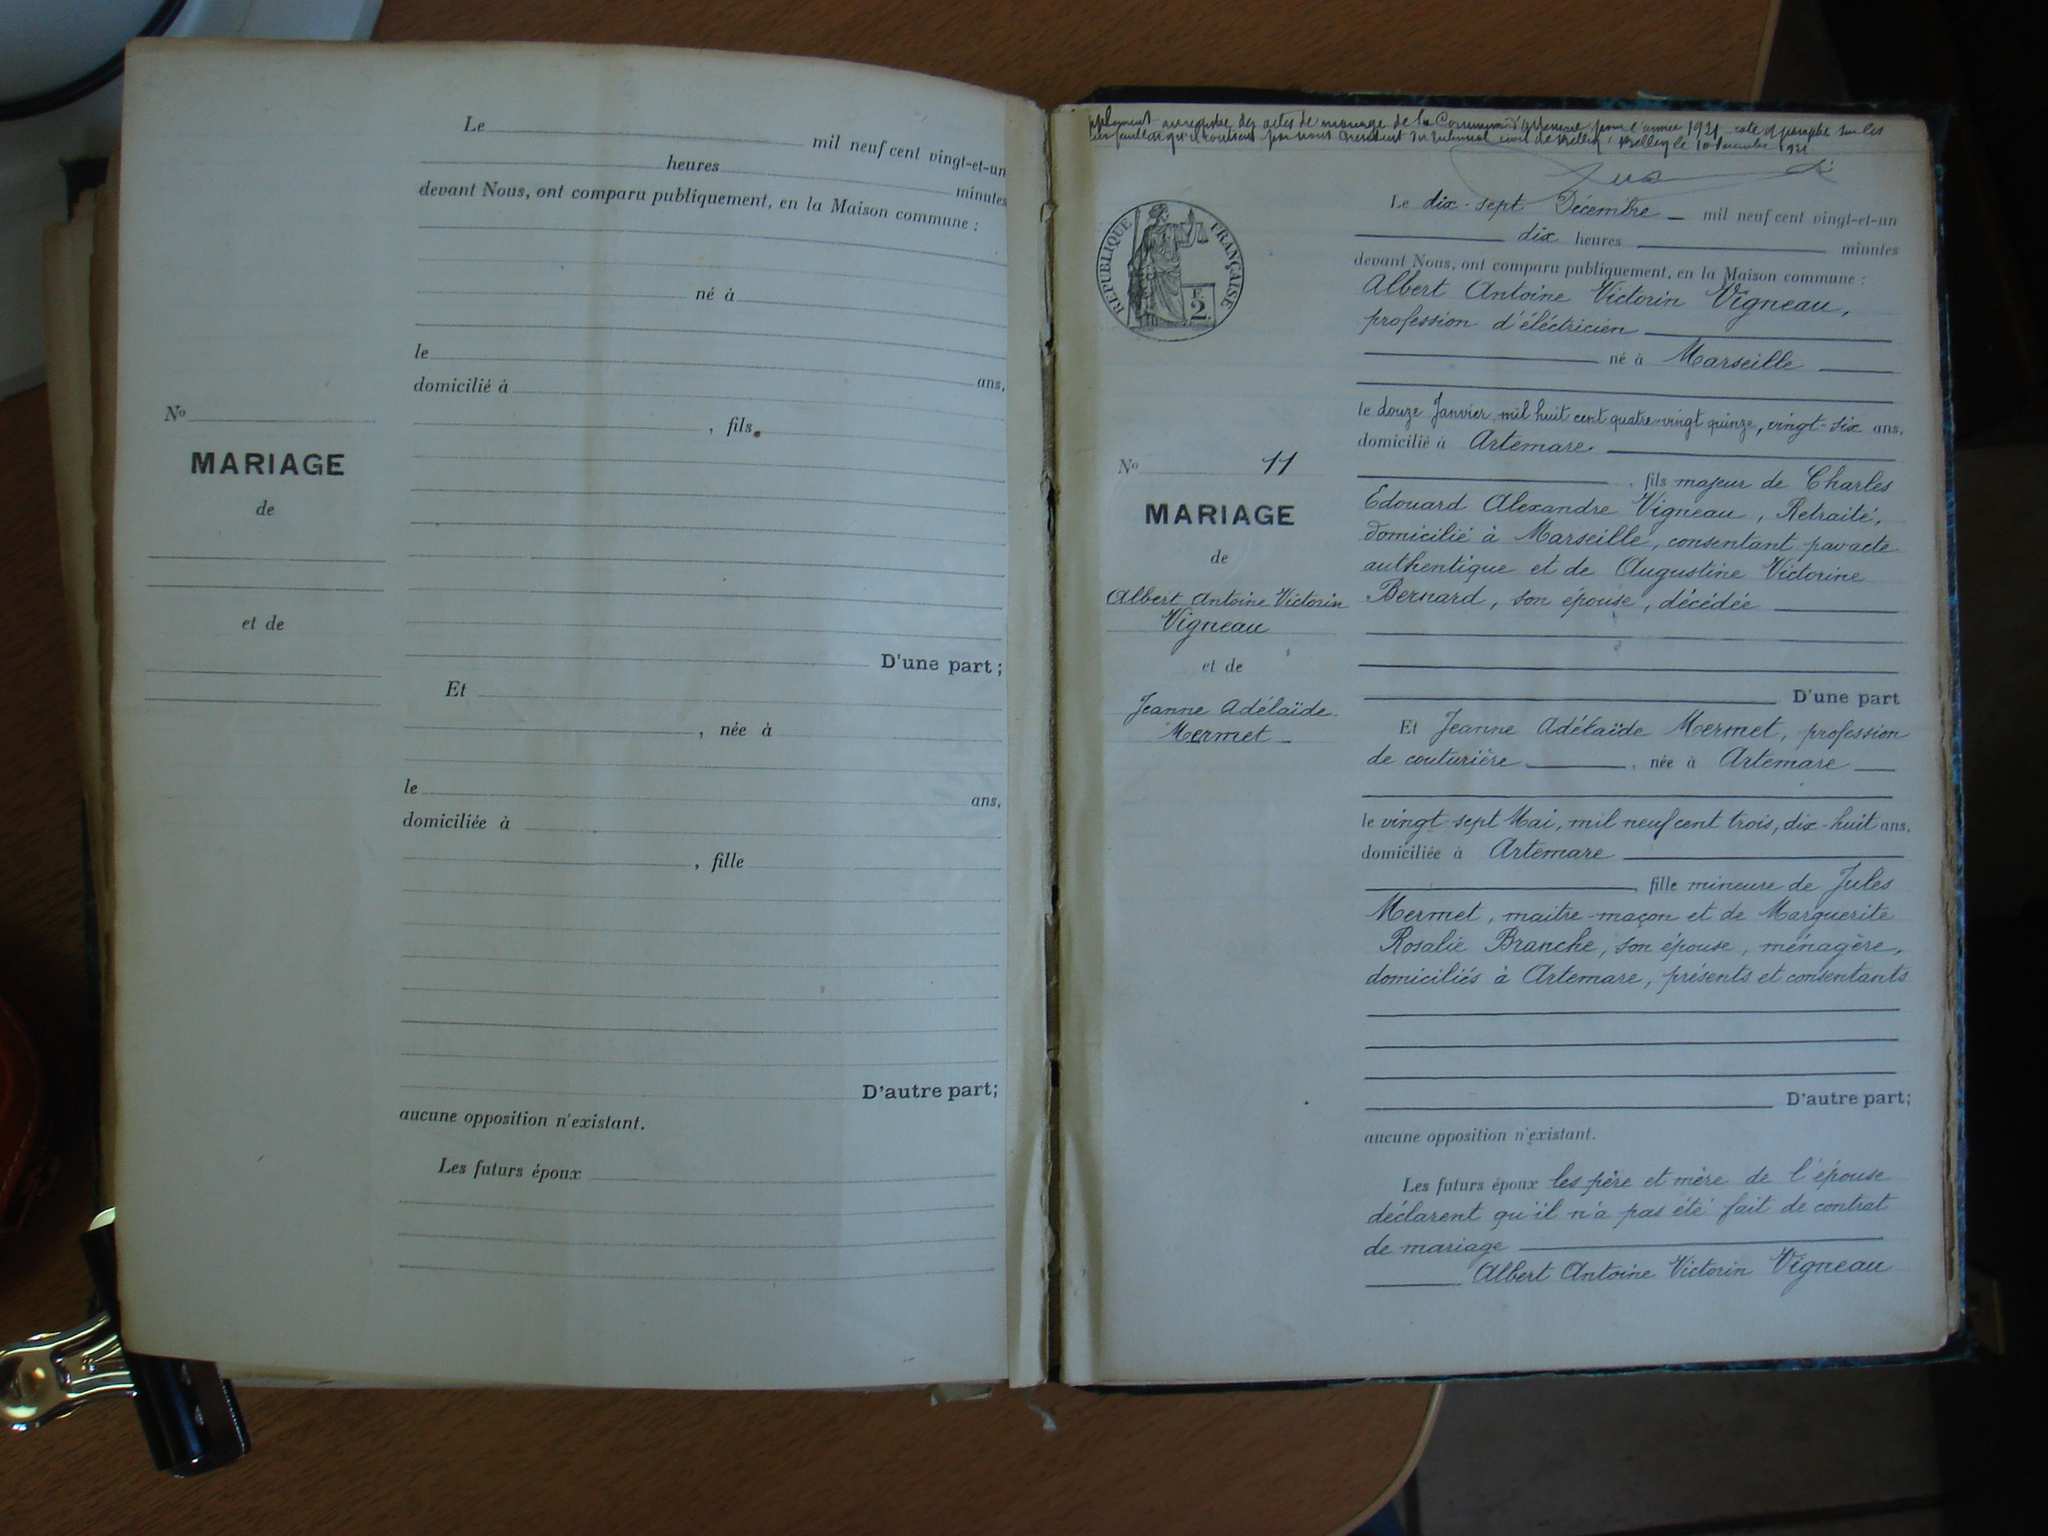 Le mil neuf cent vingt-et-un
heures minutes
devant Nous, ont comparu publiquement, en la Maison commune :
né à
le ans,
domicilié à
, fils
No
MARIAGE
de
et de
D'une part ;
Et
, née à
le ans,
domiciliée à
, fille
D'autre part;
aucune opposition n'existant.
Les futurs époux
registre des actes de mariage de la Commune d'Artemare pour l'année 1921 coté et paraphé sur les
feuillets qu'il contient par nous Président du Tribunal civil de Belley. Belley le 10 1921
RÉPUBLIQUE FRANÇAISE
F. 2.
No 11
MARIAGE
de
Albert Antoine Victorin
Vigneau
et de
Jeanne Adélaïde
Mermet
Le dix-sept Décembre mil neuf cent vingt-et-un
dix heures minutes
devant Nous, ont comparu publiquement, en la Maison commune :
Albert Antoine Victorin Vigneau,
profession d'éléctricien
né à Marseille
le douze Janvier mil huit cent quatre-vingt quinze, vingt-six ans,
domicilié à Artemare
, fils majeur de Charles
Edouard Alexandre Vigneau, Retraité,
domicilié à Marseille, consentant par acte
authentique et de Augustine Victorine
Bernard, son épouse, décédée
D'une part
Et Jeanne Adélaïde Mermet, profession
de couturière , née à Artemare
le vingt sept Mai, mil neuf cent trois, dix-huit ans,
domiciliée à Artemare
, fille mineure de Jules
Mermet, maitre-maçon et de Marguerite
Rosalie Branche, son épouse, ménagère,
domiciliés à Artemare, présents et consentants
D'autre part;
aucune opposition n'existant.
Les futurs époux les père et mère de l'épouse
déclarent qu'il n'a pas été fait de contrat
de mariage
Albert Antoine Victorin Vigneau